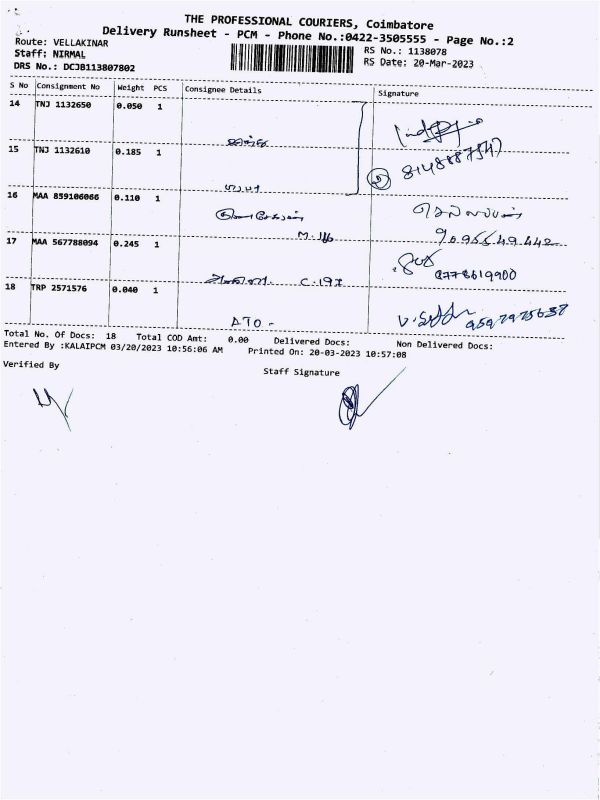 THE PROFESSIONAL COURIERS, Coimbatore
Delivery Runsheet - PCM - Phone No.:0422-3505555 - Page No.:2
Route: VELLAKINAR
RS No.: 1138078
Staff: NIRMAL
RS Date: 20-Mar-2023
DRS No.: DCJB113807802
S No Consignment No Weight PCS Consignee Details Signature
14 TNJ 1132650 0.050 1
15 TNJ 1132610 0.185 1
8148887547
16 MAA 859106066 0.110 1
M.
17 MAA 567788094 0.245 1
8778619900
C.197
18 TRP 2571576 0.040 1
9597975637
ATO -
Total No. Of Docs: 18 Total COD Amt: 0.00 Delivered Docs: Non Delivered Docs:
Entered By :KALAIPCM 03/20/2023 10:56:06 AM Printed On: 20-03-2023 10:57:08
Verified By
Staff Signature